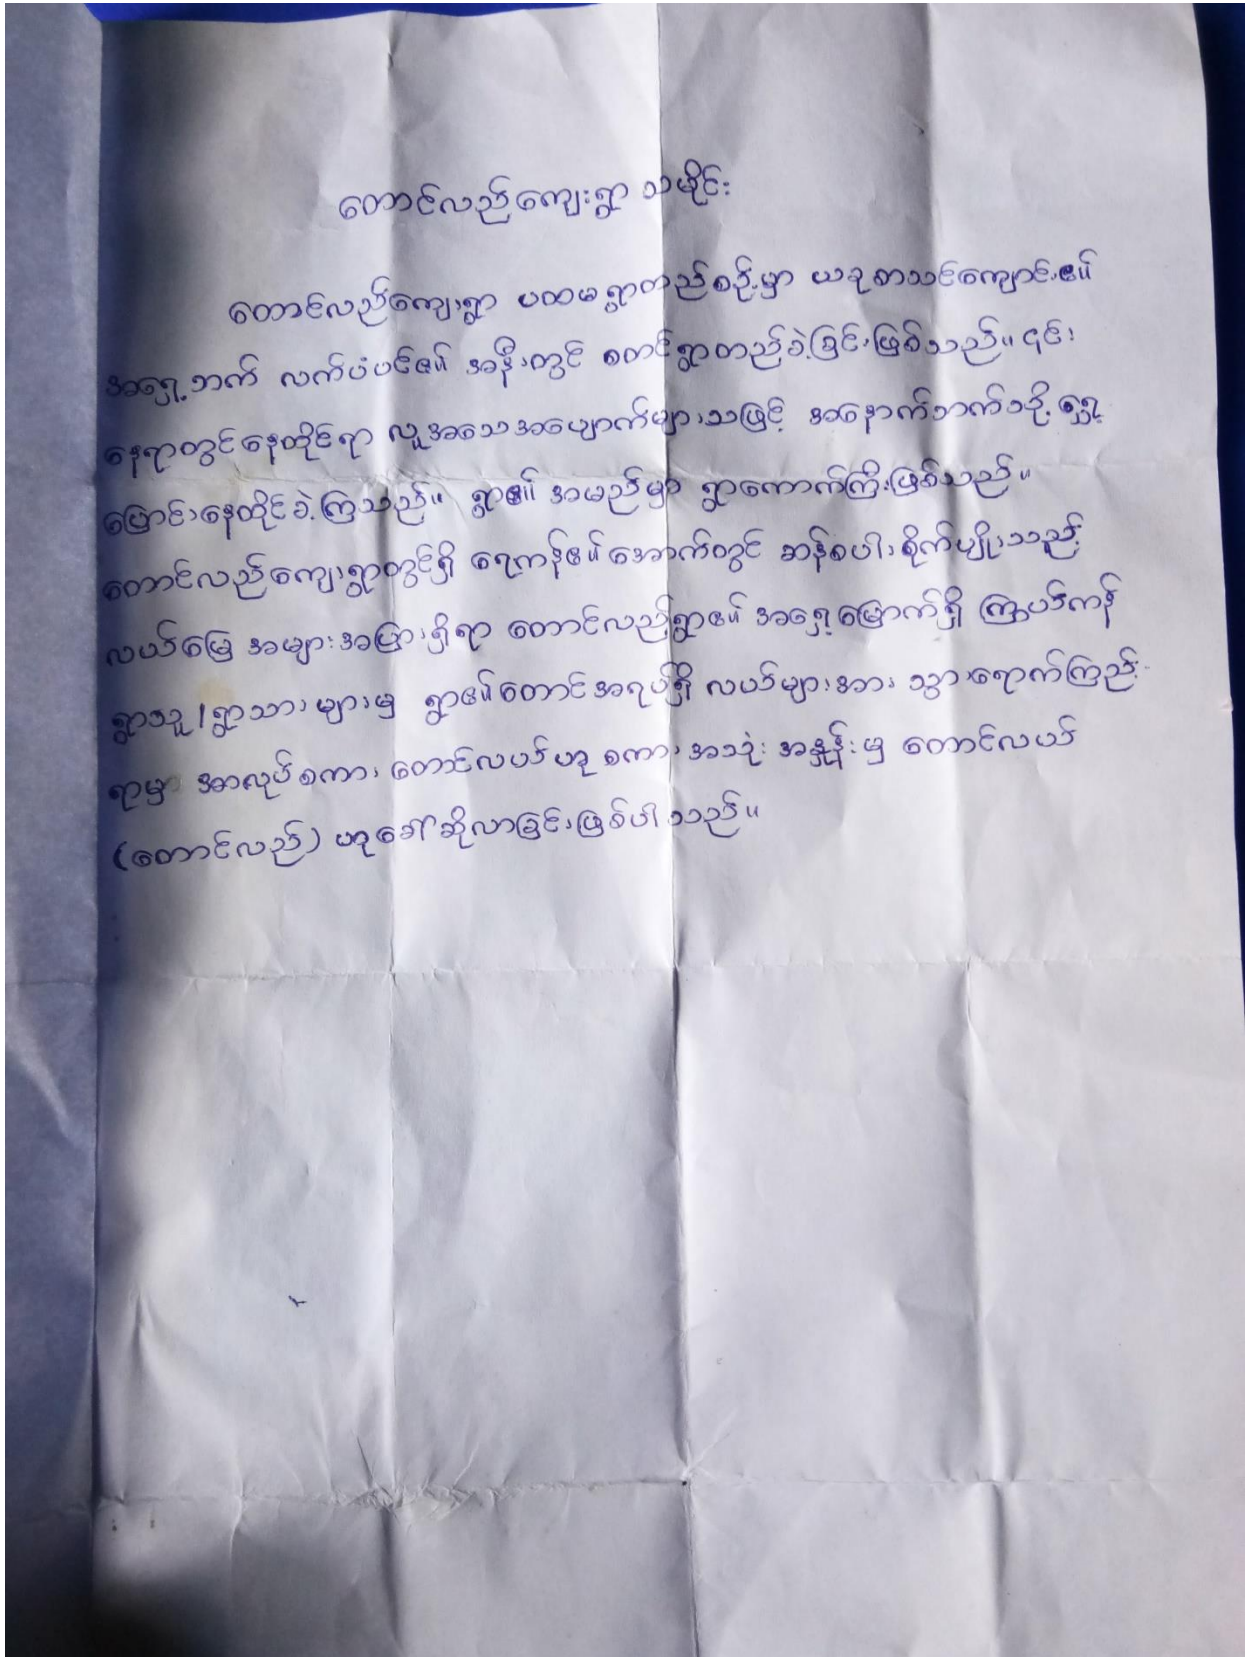 တောင်လည်ကျေးရွာ သမိုင်း
တောင်လည်ကျေးရွာ ပထမရွာတည်စဉ်မှာ ယခုစာသင်ကျောင်း၏
အရှေ့ဘက် လက်ပံပင်၏ အနီးတွင် စတင်ရွာတည်ခဲ့ခြင်းဖြစ်သည်။ ၎င်း
နေရာတွင်နေထိုင်ရာ လူအသေအပျောက်များသဖြင့် အနောက်ဘက်သို့ ရွှေ့
ပြောင်းနေထိုင်ခဲ့ကြသည်။ ရွာ၏ အမည်မှာ ရွာကောက်ကြီးဖြစ်သည်။
တောင်လည်ကျေးရွာတွင်ရှိ ရေကန်၏အောက်တွင် ဆန်စပါးစိုက်ပျိုးသည့်
လယ်မြေ အများအပြားရှိရာ တောင်လည်ရွာ၏ အရှေ့မြောက်ရှိ ကြာပင်ကန်
ရွာသူ/ရွာသားများမှ ရွာ၏တောင်အရပ်ရှိ လယ်များအား သွားရောက်ကြည့်
ရာမှာ အာလုပ်စကား တောင်လယ်ဟု စကားအသုံးအနှုန်းမှ တောင်လယ်
(တောင်လည်) ဟုခေါ်ဆိုလာခြင်းဖြစ်ပါသည်။